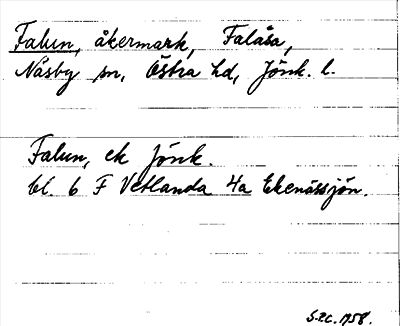 Falun, åkermark, Falåsa,
Näsby sn, Östra hd, Jönk. l.
Falun, ek Jönk.
bl. 6 F Vetlanda 4a Ekenässjön.
1958.